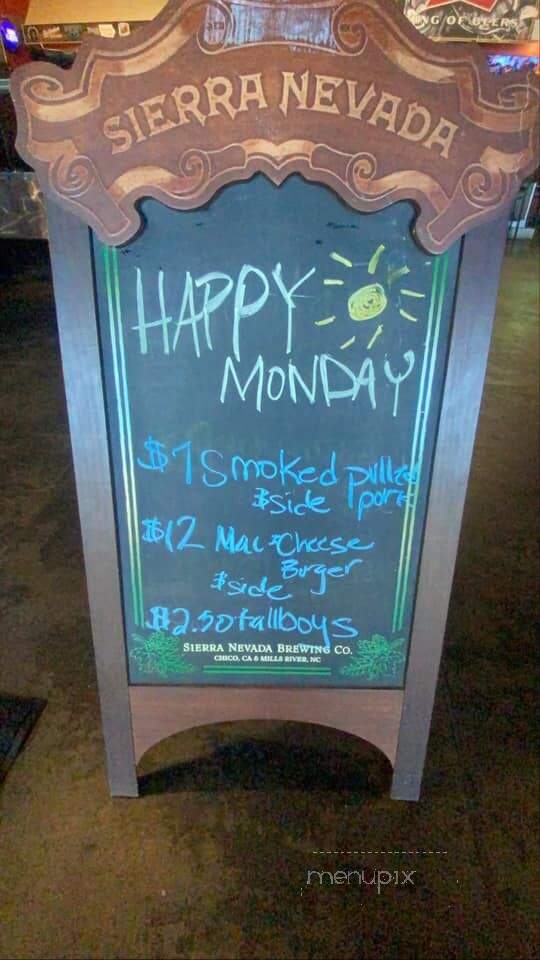 NG OF BEERS
SIERRA NEVADA
HAPPY
MONDAY
$7 Smoked pulled
& side pork
$12 Mac & Cheese
Burger
& side
$2.50 tallboys
SIERRA NEVADA BREWING CO.
CHICO, CA & MILLS RIVER, NC
menupix